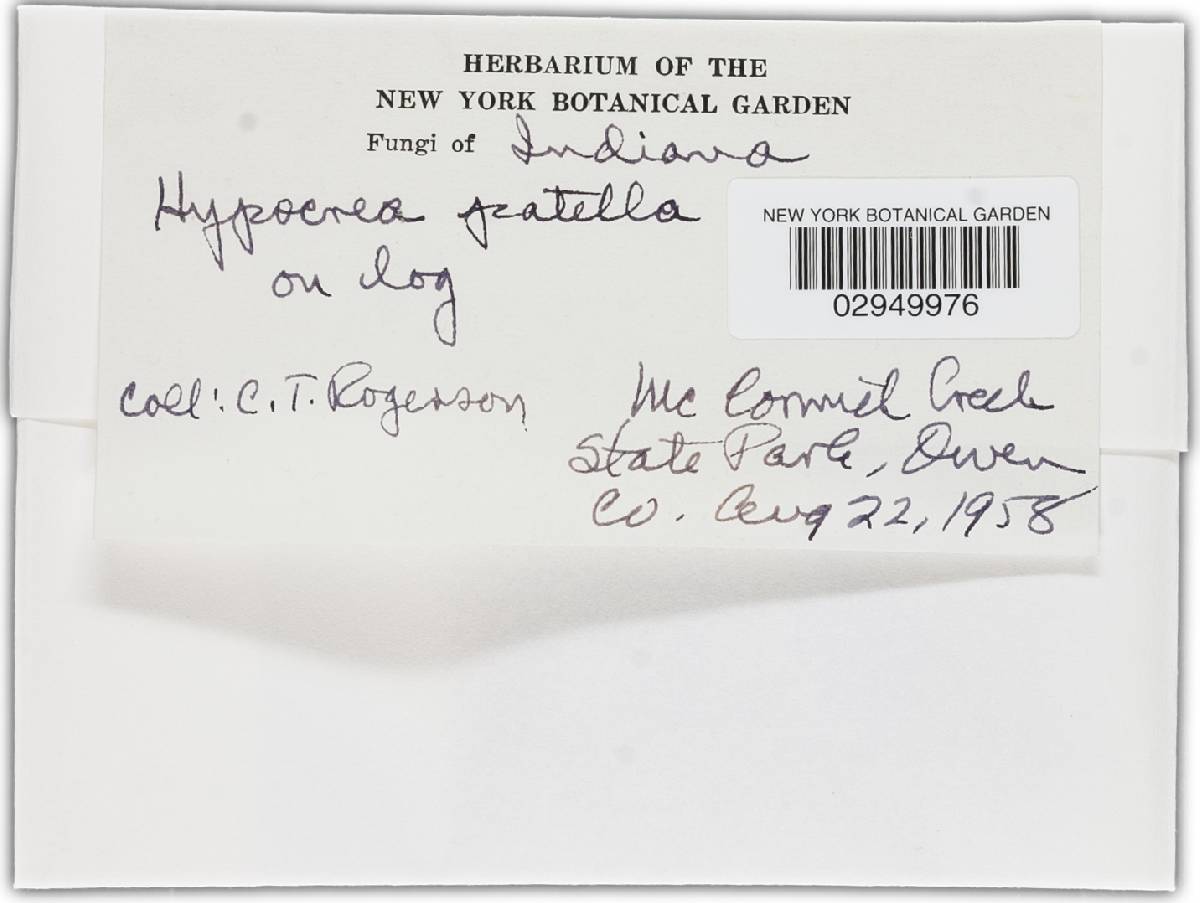 HERBARIUM OF THE
NEW YORK BOTANICAL GARDEN
Fungi of Indiana
Hypocrea patella
on log
NEW YORK BOTANICAL GARDEN
02949976
Coll: C. T. Rogerson
Mc Cormick Creek
State Park, Owen
Co. Aug 22, 1958